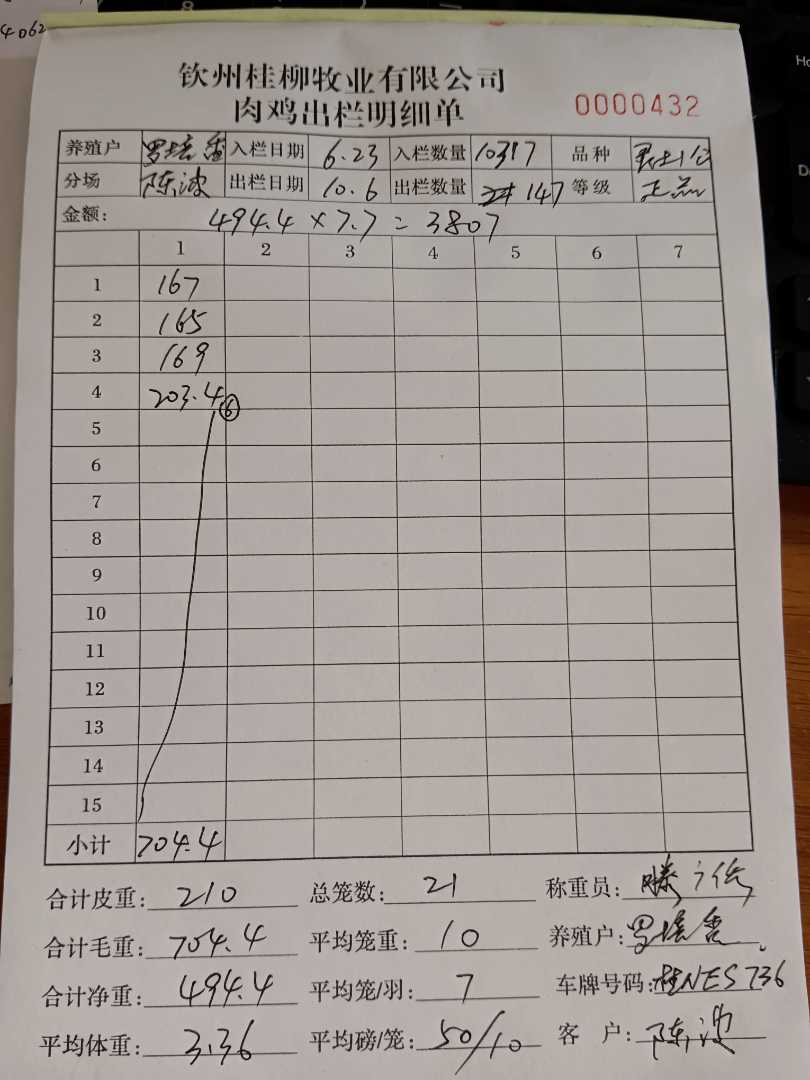 4062
钦州桂柳牧业有限公司
肉鸡出栏明细单 0000432
养殖户 罗培香 入栏日期 6.23 入栏数量 10317 品种
分场 陈波 出栏日期 10.6 出栏数量 147 等级 正品
金额: 494.4 × 7.7 = 3807
1 2 3 4 5 6 7
1 167
2 165
3 169
4 203.4 ⑥
5
6
7
8
9
10
11
12
13
14
15
小计 704.4
合计皮重: 210 总笼数: 21 称重员:
合计毛重: 704.4 平均笼重: 10 养殖户: 罗培香
合计净重: 494.4 平均笼/羽: 7 车牌号码: 桂NES736
平均体重: 3.36 平均磅/笼: 50/10 客 户: 陈波